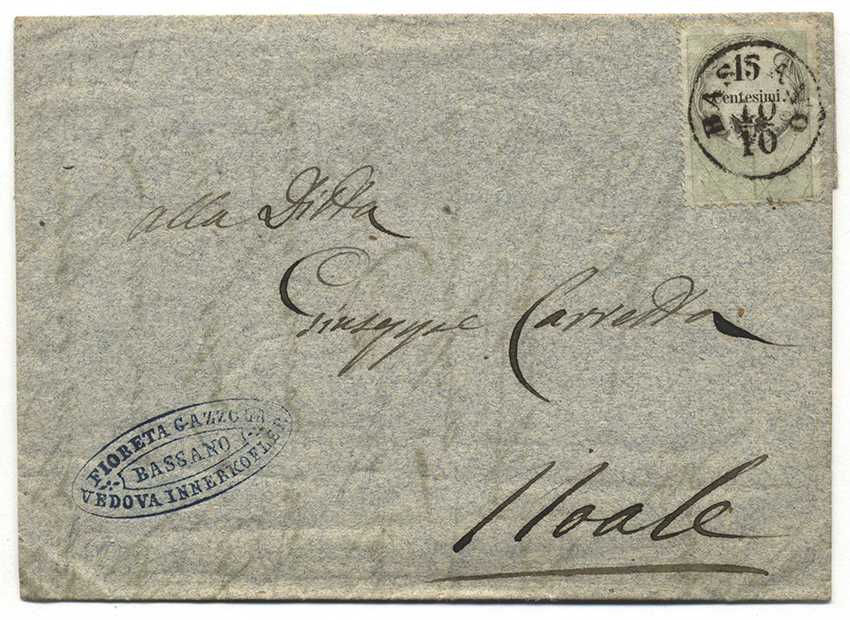 15
Centesimi.
BASSANO
10
10
alla Ditta
Giuseppe
Noale
FIORETA GAZZOLA
BASSANO
VEDOVA INNERKOFLER